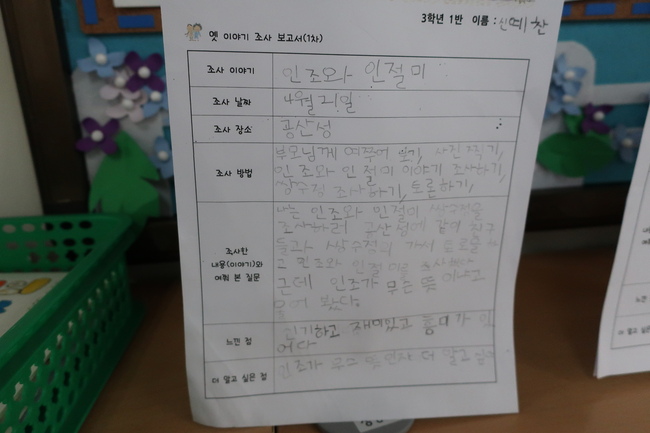 3학년 1반 이름 : 신예찬
옛 이야기 조사 보고서(1차)
조사 이야기 인조와 인절미
조사 날짜 4월 21일
조사 장소 공산성
조사 방법
부모님께 여쭈어 보기, 사진 찍기,
인조와 인절미 이야기 조사하기,
쌍수정 조사하기, 토론하기,
조사한
내용(이야기)와
여쭤 본 질문
나는 인조와 인절미 쌍수정을
조사하러 공산성에 같이 친구
들과 쌍수정의 가서 토론을
고 인조와 인절미를 조사했다
근데 인조가 무슨 뜻 이냐고
물어 봤다.
느낀 점
신기하고 재미있고 흥미가 있
어다
더 알고 싶은 점
인조가 무슨 뜻 인지 더 알고 싶어